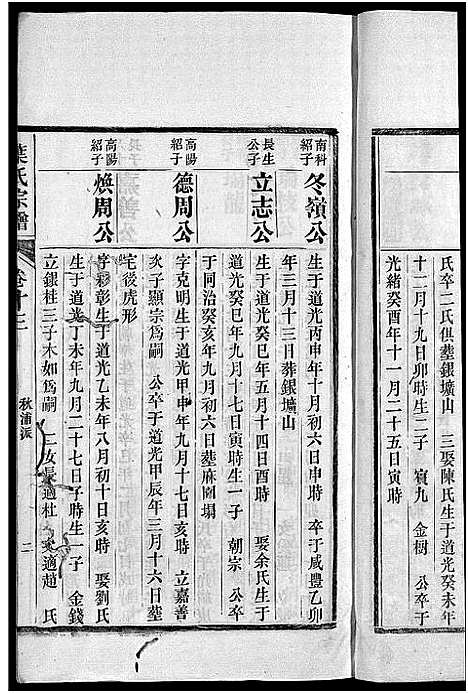 氏卒二氏俱塟銀壙山　三娶陳氏生于道光癸未年
十二月十九日卯時生二子　賔九　金榭　公卒于
光緒癸酉年十一月二十五日寅時
南科
紹子
冬嶺公
生于道光丙申年十月初六日申時　卒于咸豐乙卯
年三月十三日葬銀壙山
長生
公子
立志公
生于道光癸巳年五月十四日酉時　娶余氏生于
道光癸巳年九月十七日寅時生一子　朝宗　公卒
于同治癸亥年九月初六日塟麻園塌
高陽
紹子
德周公
字克明生于道光甲申年九月十七日亥時　立嘉善
次子顯宗爲嗣　公卒于道光甲辰年三月十六日塟
宅後虎形
高陽
紹子
煥周公
字彩彰生于道光乙未年八月初十日亥時　娶劉氏
生于道光丁未年九月二十七日子時生一子　金錢
立銀桂三子木如爲嗣　二女長適杜　次適趙　氏
葉氏宗譜
卷十二
秋浦派
二